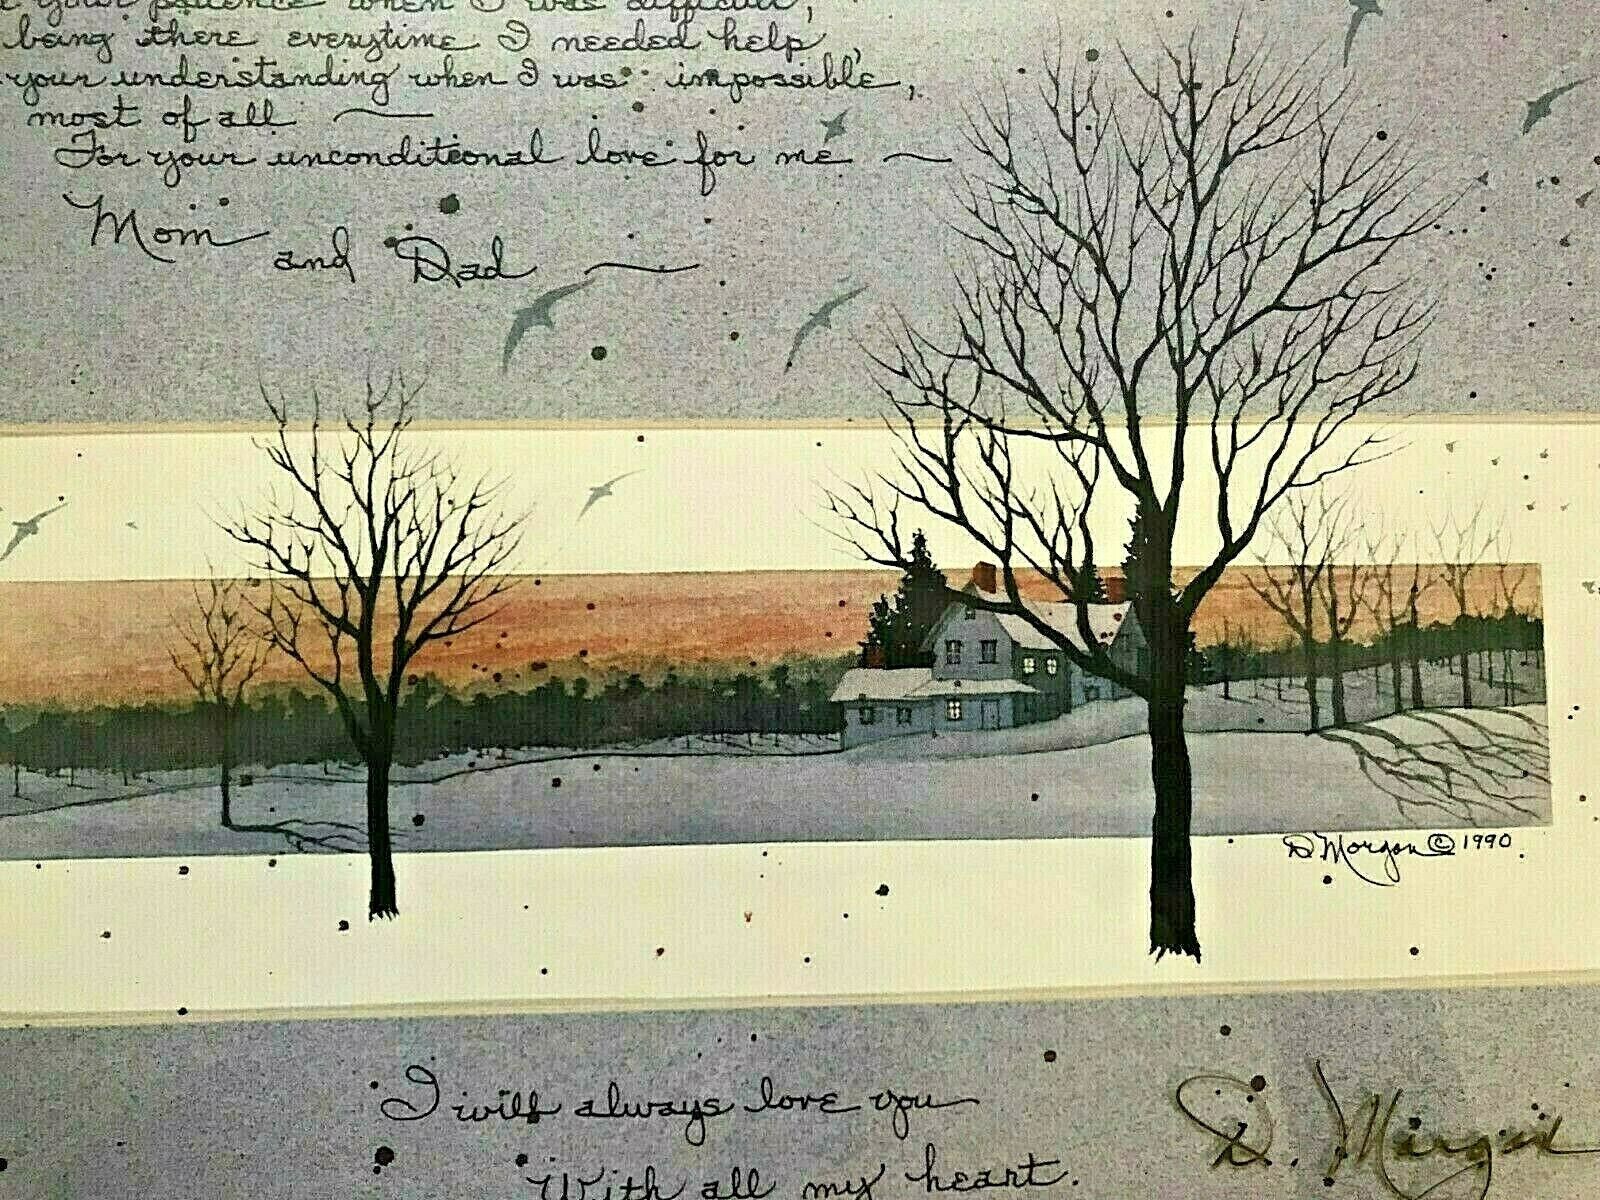 your patience when I was difficult,
being there everytime I needed help,
your understanding when I was impossible,
most of all ~
For your unconditional love for me ~
Mom and Dad ~
D. Morgan © 1990.
I will always love you
With all my heart.
D. Morgan